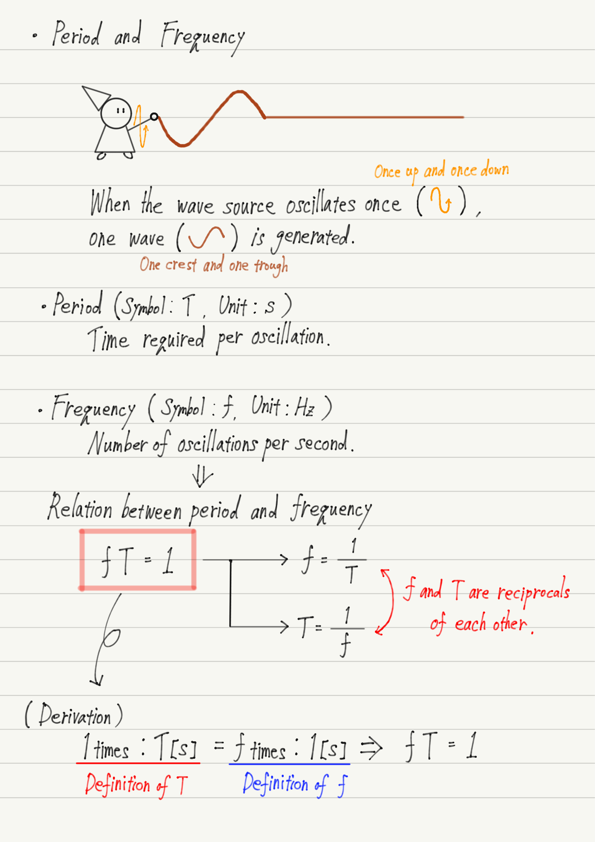 ・Period and Frequency
Once up and once down
When the wave source oscillates once ( ),
one wave ( ) is generated.
One crest and one trough
・Period (Symbol: T, Unit: s)
Time required per oscillation.
・Frequency (Symbol: f, Unit: Hz)
Number of oscillations per second.
⇓
Relation between period and frequency
fT = 1 → f = 1/T
→ T = 1/f
f and T are reciprocals
of each other.
(Derivation)
1 times : T[s] = f times : 1[s] ⇒ fT = 1
Definition of T Definition of f